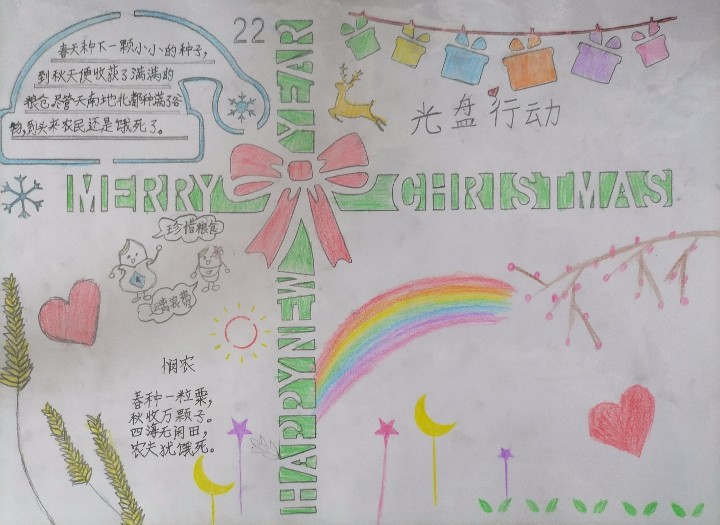 22
春天种下一颗小小的种子,
到秋天便收获了满满的
粮仓,尽管天南地北都种满了谷
物,到头来农民还是饿死了。
光盘行动
MERRY CHRISTMAS
HAPPY NEW YEAR
珍惜粮食
远离浪费
悯农
春种一粒粟,
秋收万颗子。
四海无闲田,
农夫犹饿死。